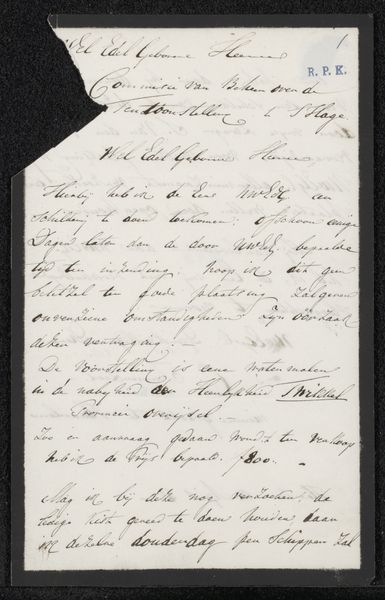 Wel Edel Geboren Heeren
1
R. P. K.
Commissie van Beheer over de
Tentoonstelling te S'Hage
Wel Edel Geboren Heeren
Hierbij heb ik de Eer UwEd. een
Schilderij te doen toekomen: ofschoon eenige
Dagen later dan de door UwEd. bepaalde
tijd ter inzending. hoop ik dit geen
beletzel ter goede plaatsing zal geven
onvoorziene omstandigheden zijn oorzaak
dezer vertraging. —
De voorstelling is eene watermolen
in de nabijheid der Heerlijkheid Twikkel
Provincie overijsel —
Zoo er aanvraag gedaan wordt ten verkoop
heb ik de Prijs bepaald. f 800. —
Mag ik bij deze nog verzoeken, de
ledige kist gereed te doen houden daar
ik dezelve donderdag per Schipper zal